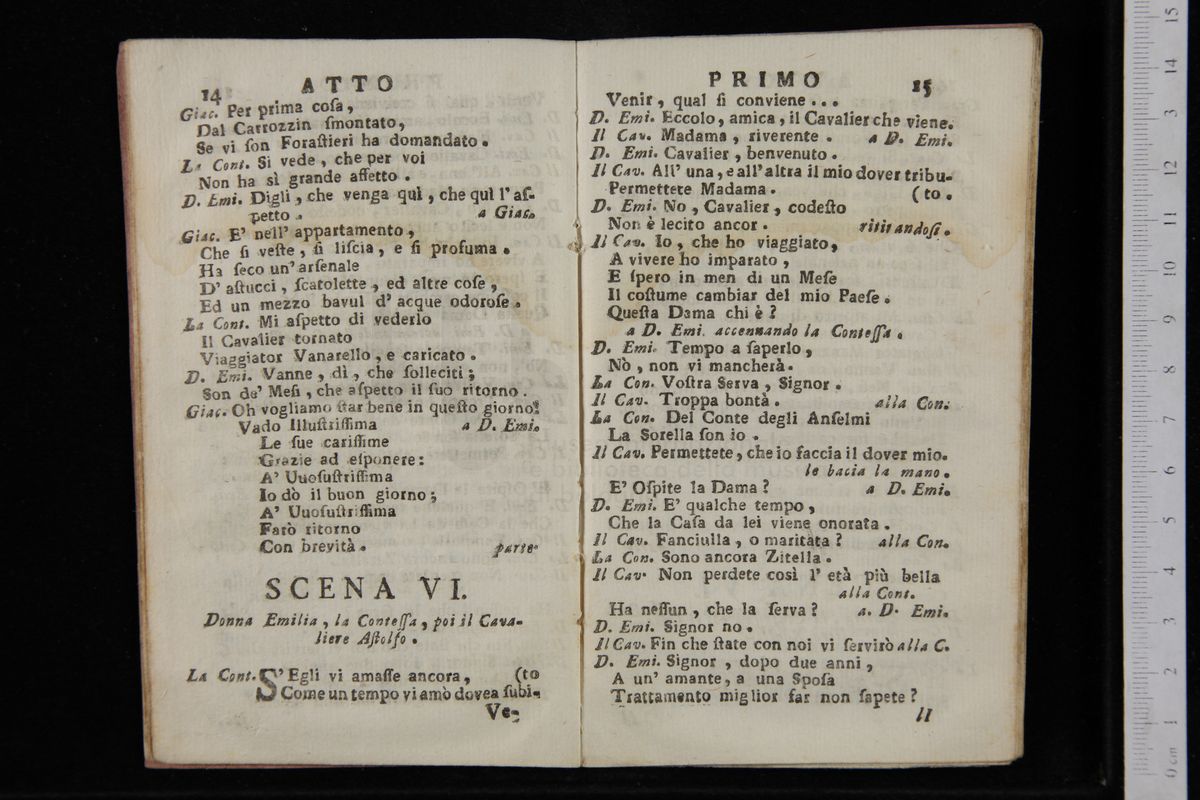 14 ATTO
Giac. Per prima coſa,
Dal Carrozzin ſmontato,
Se vi ſon Foraſtieri ha domandato.
La Cont. Si vede, che per voi
Non ha sì grande affetto.
D. Emi. Digli, che venga quì, che quì l'aſ-
petto. a Giac.
Giac. E' nell' appartamento,
Che ſi veſte, ſi liſcia, e ſi profuma.
Ha ſeco un' arſenale
D' aſtucci, ſcatolette, ed altre coſe,
Ed un mezzo bavul d' acque odoroſe.
La Cont. Mi aſpetto di vederlo
Il Cavalier tornato
Viaggiator Vanarello, e caricato.
D. Emi. Vanne, dì, che ſolleciti;
Son de' Meſi, che aſpetto il ſuo ritorno.
Giac. Oh vogliamo ſtar bene in queſto giorno!
Vado Illuſtriſſima a D. Emi.
Le ſue cariſſime
Grazie ad eſponere:
A' Uuoſuſtriſſima
Io dò il buon giorno;
A' Uuoſuſtriſſima
Farò ritorno
Con brevità. parte.
SCENA VI.
Donna Emilia, la Conteſſa, poi il Cava-
liere Aſtolfo.
La Cont. S' Egli vi amaſſe ancora, (to
Come un tempo vi amò dovea ſubi-
Ve-
PRIMO 15
Venir, qual ſi conviene ...
D. Emi. Eccolo, amica, il Cavalier che viene.
Il Cav. Madama, riverente. a D. Emi.
D. Emi. Cavalier, benvenuto.
Il Cav. All' una, e all'altra il mio dover tribu-
Permettete Madama. (to.
D. Emi. No, Cavalier, codeſto
Non è lecito ancor. ritirandoſi.
Il Cav. Io, che ho viaggiato,
A vivere ho imparato,
E ſpero in men di un Meſe
Il coſtume cambiar del mio Paeſe.
Queſta Dama chi è?
a D. Emi. accennando la Conteſſa.
D. Emi. Tempo a ſaperlo,
Nò, non vi mancherà.
La Con. Voſtra Serva, Signor.
Il Cav. Troppa bontà. alla Con.
La Con. Del Conte degli Anſelmi
La Sorella ſon io.
Il Cav. Permettete, che io faccia il dover mio.
le bacia la mano.
E' Oſpite la Dama? a D. Emi.
D. Emi. E' qualche tempo,
Che la Caſa da lei viene onorata.
Il Cav. Fanciulla, o maritata? alla Con.
La Con. Sono ancora Zitella.
Il Cav. Non perdete così l' età più bella
alla Cont.
Ha neſſun, che la ſerva? a. D. Emi.
D. Emi. Signor no.
Il Cav. Fin che ſtate con noi vi ſervirò alla C.
D. Emi. Signor, dopo due anni,
A un' amante, a una Spoſa
Trattamento miglior far non ſapete?
Il
0 cm 1 2 3 4 5 6 7 8 9 10 11 12 13 14 15